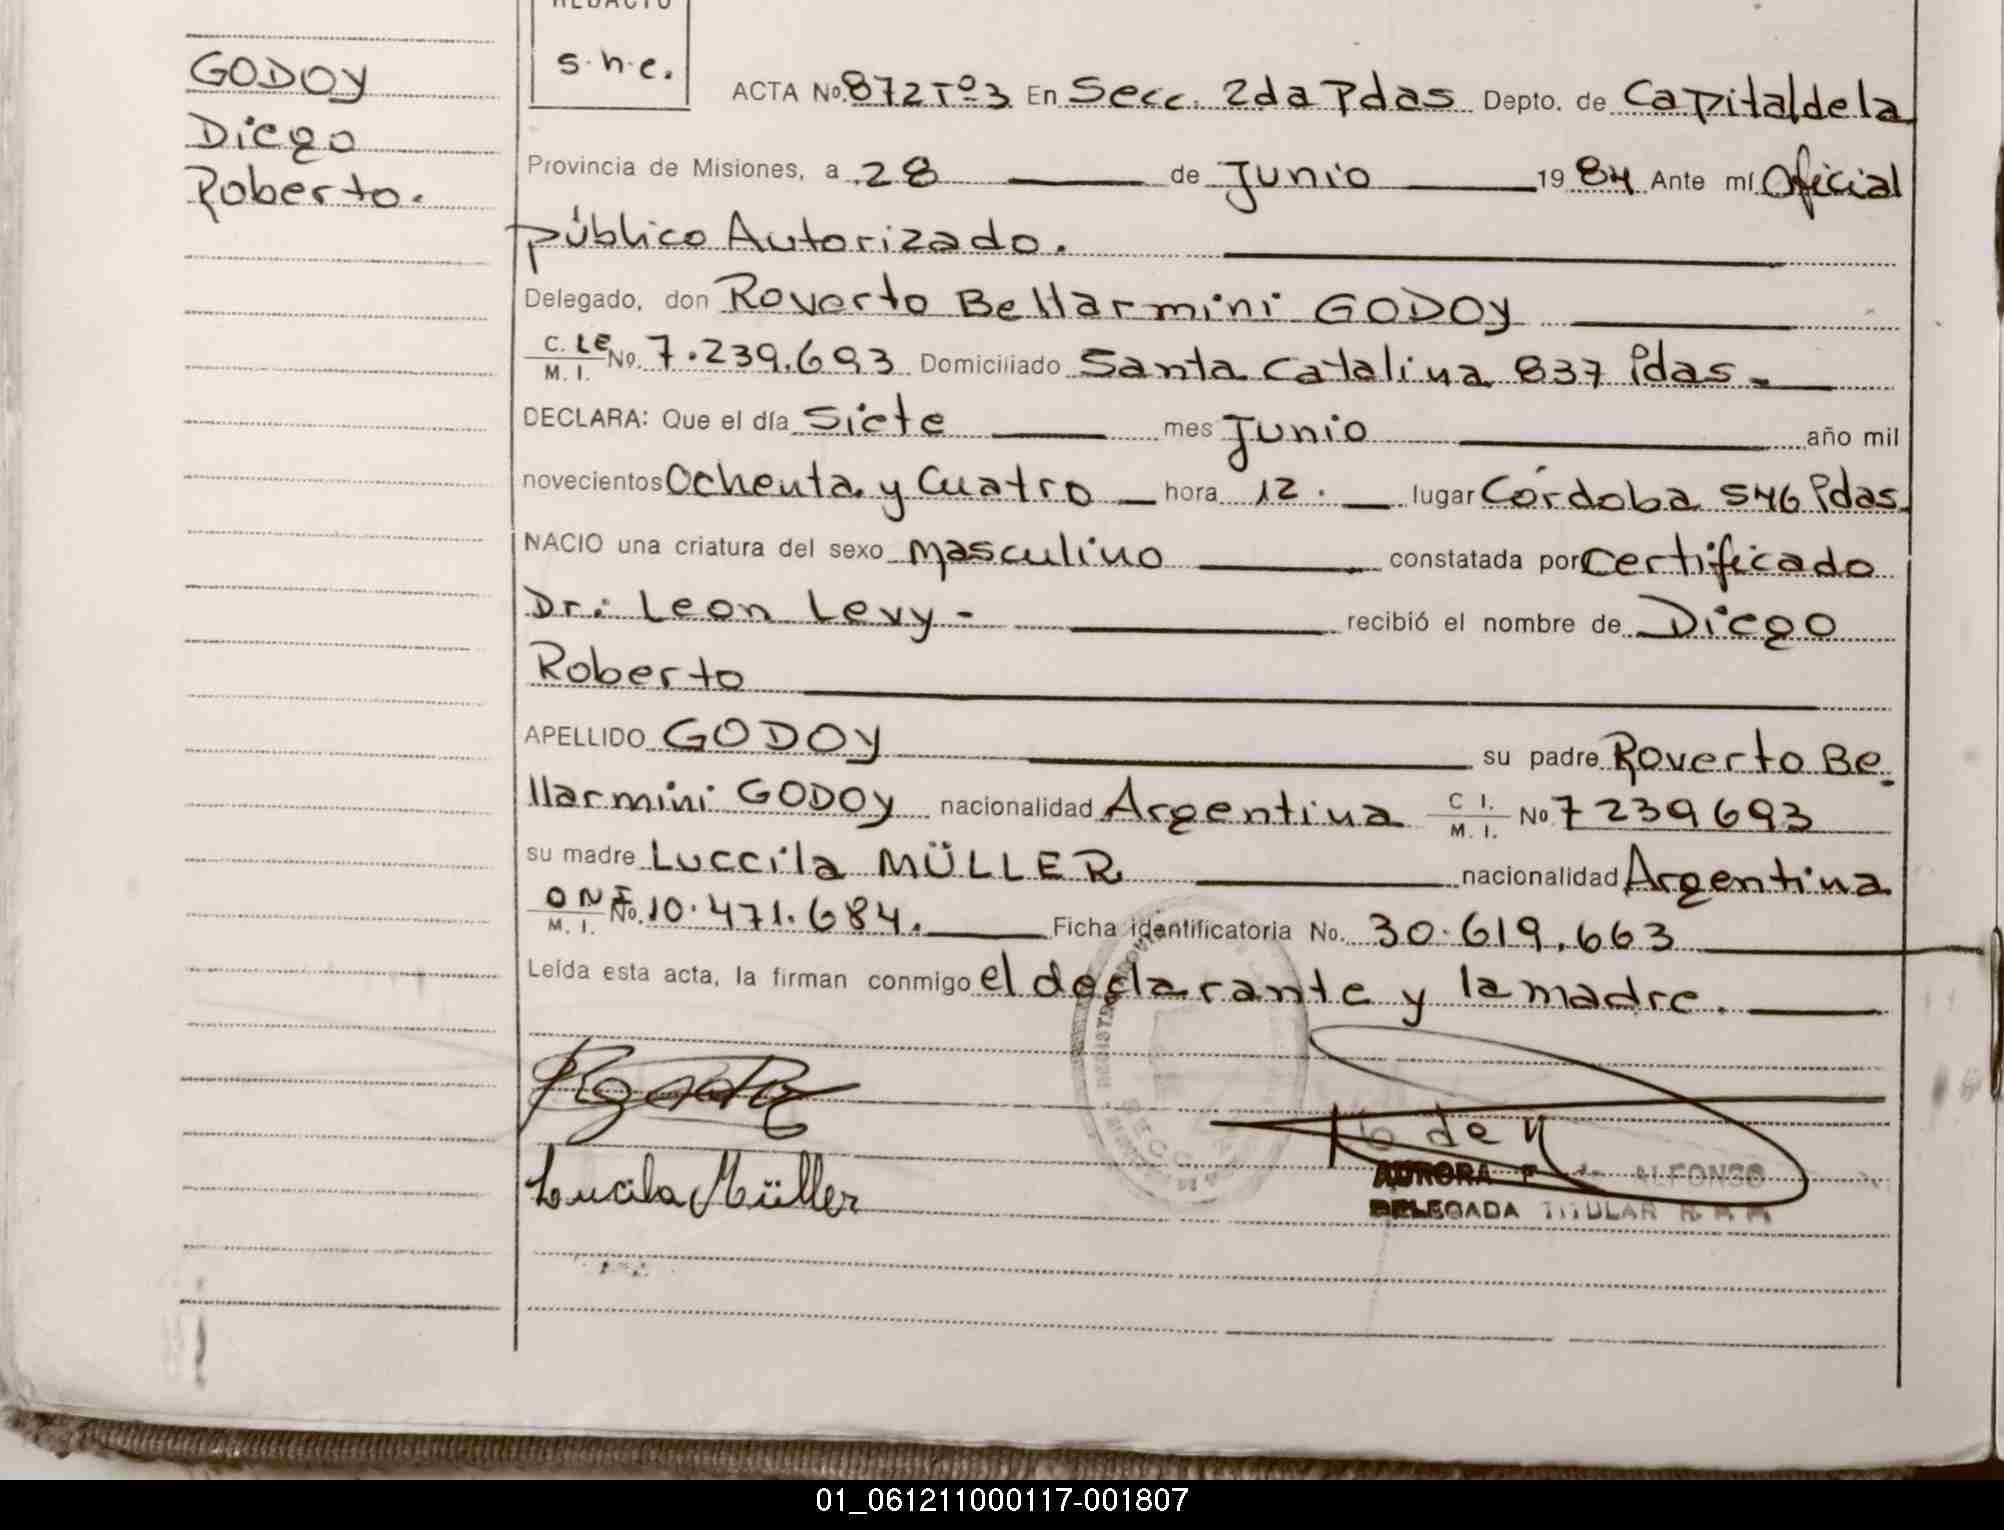 GODOY
Diego
Roberto.
REDACTO
s.h.e.
ACTA No. 872 Tº3 En Secc. 2da Pdas Depto. de Capital de la
Provincia de Misiones, a 28 de Junio 1984 Ante mí Oficial
público Autorizado.
Delegado, don Roverto Bellarmini GODOY
C. LE No. 7.239.693 Domiciliado Santa Catalina 837 Pdas.
M. I.
DECLARA: Que el día Siete mes Junio año mil
novecientos Ochenta y Cuatro hora 12. lugar Córdoba 546 Pdas.
NACIO una criatura del sexo masculino constatada por certificado
Dr: Leon Levy- recibió el nombre de Diego
Roberto
APELLIDO GODOY su padre Roverto Be
llarmini GODOY nacionalidad Argentina C I. No 7239693
M. I.
su madre Luccila MÜLLER nacionalidad Argentina
D N I No. 10.471.684. Ficha identificatoria No. 30.619.663
M. I.
Leída esta acta, la firman conmigo el declarante y la madre.
Lucila Müller
AURORA ALFONSO
DELEGADA TITULAR
01_061211000117-001807